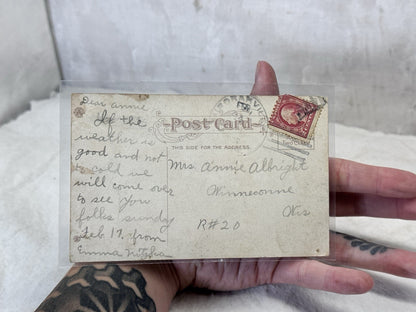 Dear annie
If the
weather is
good and not
to cold we
will come over
to see you
folks sunday
Feb 17. from
Emma
Post Card
THIS SIDE FOR THE ADDRESS.
Mrs. Annie Albright
Winneconne
R#20 Wis